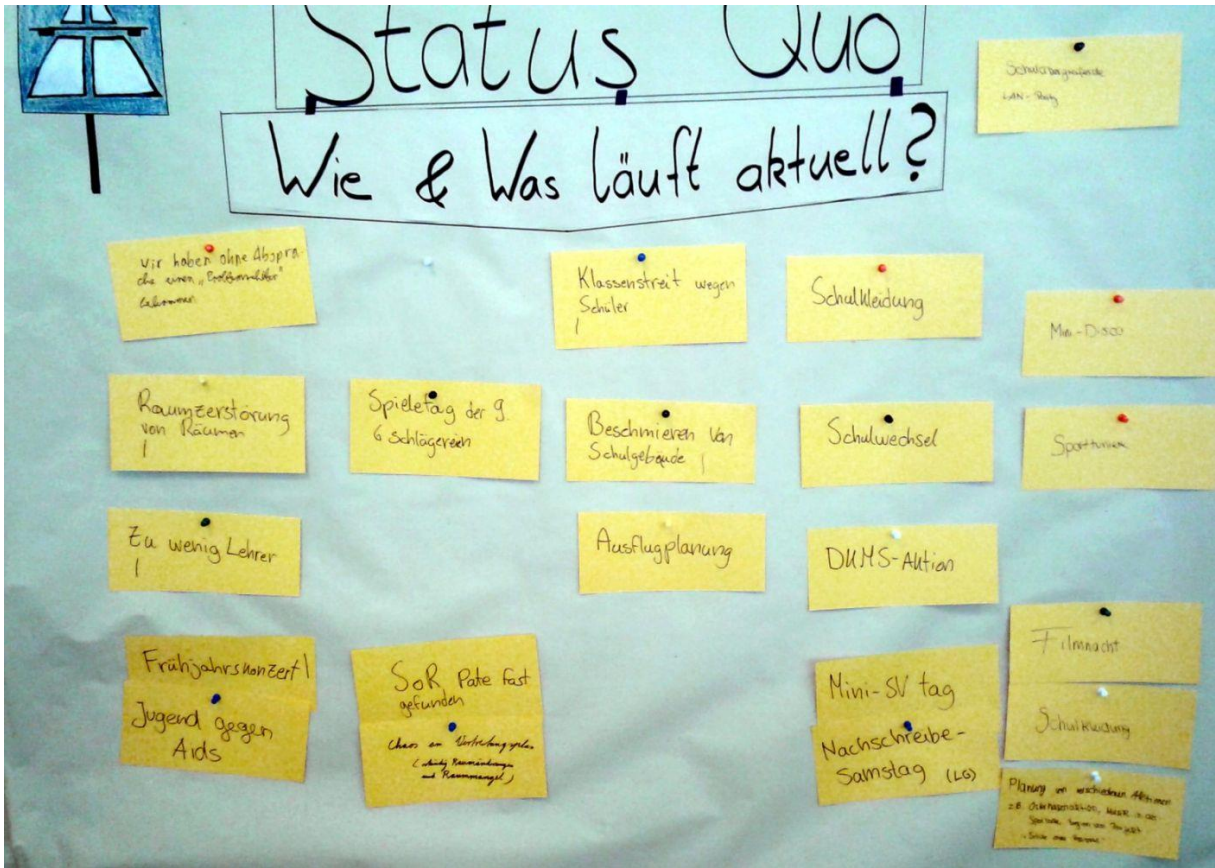 Status Quo
Wie & Was läuft aktuell?
Schulübergreifende
LAN-Party
wir haben ohne Abspra-
che einen
bekommen
Klassenstreit wegen
Schüler
Schulkleidung
Mini-Disco
Raumzerstörung
von Räumen
Spieletag der 9.
6 Schlägereien
Beschmieren von
Schulgebäude
Schulwechsel
Sportturnier
Zu wenig Lehrer
Ausflugplanung
DKMS-Aktion
Frühjahrskonzert
Jugend gegen
Aids
SoR Pate fast
gefunden
Chaos am Vertretungsplan
(ständig Raumänderungen
und Raummangel)
Mini-SV tag
Nachschreibe-
Samstag (LG)
Filmnacht
Schulkleidung
Planung von verschiedenen Aktionen
z.B.